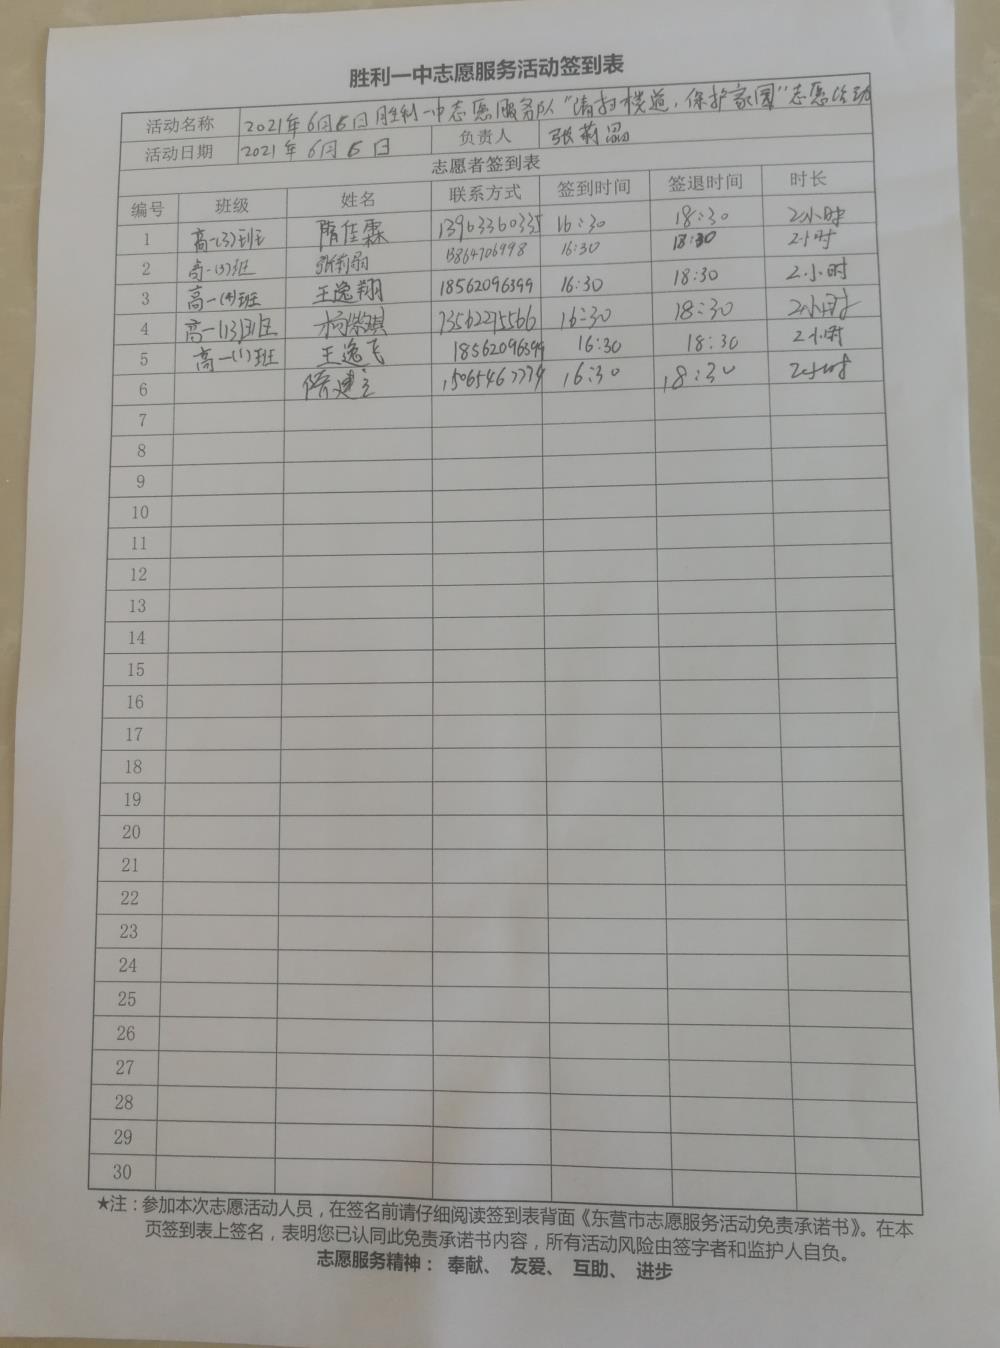 胜利一中志愿服务活动签到表
活动名称 2021年6月6日胜利一中志愿服务队“清扫楼道，保护家园”志愿活动
活动日期 2021年6月6日 负责人
志愿者签到表
编号 班级 姓名 联系方式 签到时间 签退时间 时长
1 高一(3)班 隋佳霖 13963360335 16:30 18:30 2小时
2 高一(3)班 13864706998 16:30 18:30 2小时
3 高一(4)班 王逸翔 18562096399 16:30 18:30 2小时
4 高一(13)班 16:30 18:30 2小时
5 高一(1)班 王逸飞 18562096399 16:30 18:30 2小时
6 隋建立 16:30 18:30 2小时
7
8
9
10
11
12
13
14
15
16
17
18
19
20
21
22
23
24
25
26
27
28
29
30
★注：参加本次志愿活动人员，在签名前请仔细阅读签到表背面《东营市志愿服务活动免责承诺书》。在本
页签到表上签名，表明您已认同此免责承诺书内容，所有活动风险由签字者和监护人自负。
志愿服务精神： 奉献、 友爱、 互助、 进步